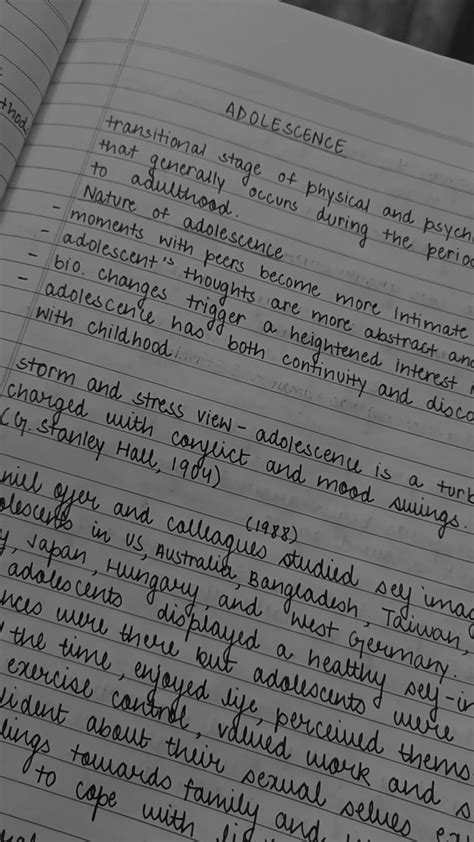 thod.
ADOLESCENCE
transitional stage of physical and psych
that generally occurs during the perio
to adulthood.
Nature of adolescence
- moments with peers become more intimate
- adolescent's thoughts are more abstract and
- bio. changes trigger a heightened interest
- adolescence has both continuity and disco
with childhood.
storm and stress view - adolescence is a turb
charged with conflict and mood swings.
(G. Stanley Hall, 1904)
niel offer and colleagues (1988) studied self imag
olescents in US, Australia, Bangladesh, Taiwan,
y, Japan, Hungary, and West Germany.
adolescents displayed a healthy self-i
nces were there but adolescents were
the time, enjoyed life, perceived thems
exercise control, valued work and s
ident about their sexual selves ex
lings towards family and
to cope with li